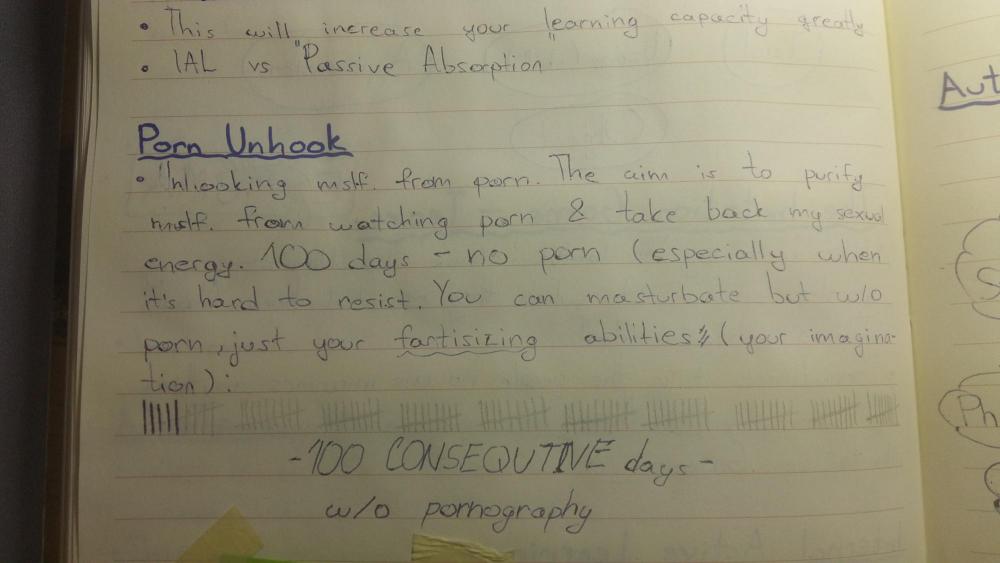 • This will increase your "learning capacity greatly
• IAL vs "Passive Absorption
Aut
Porn Unhook
• Inhooking mslf. from porn. The aim is to purify
mslf. from watching porn & take back my sexual
energy. 100 days - no porn (especially when
it's hard to resist. You can masturbate but w/o
porn, just your fantisizing abilities (your imagina-
tion):
-100 CONSEQUTIVE days-
w/o pornography
Ph